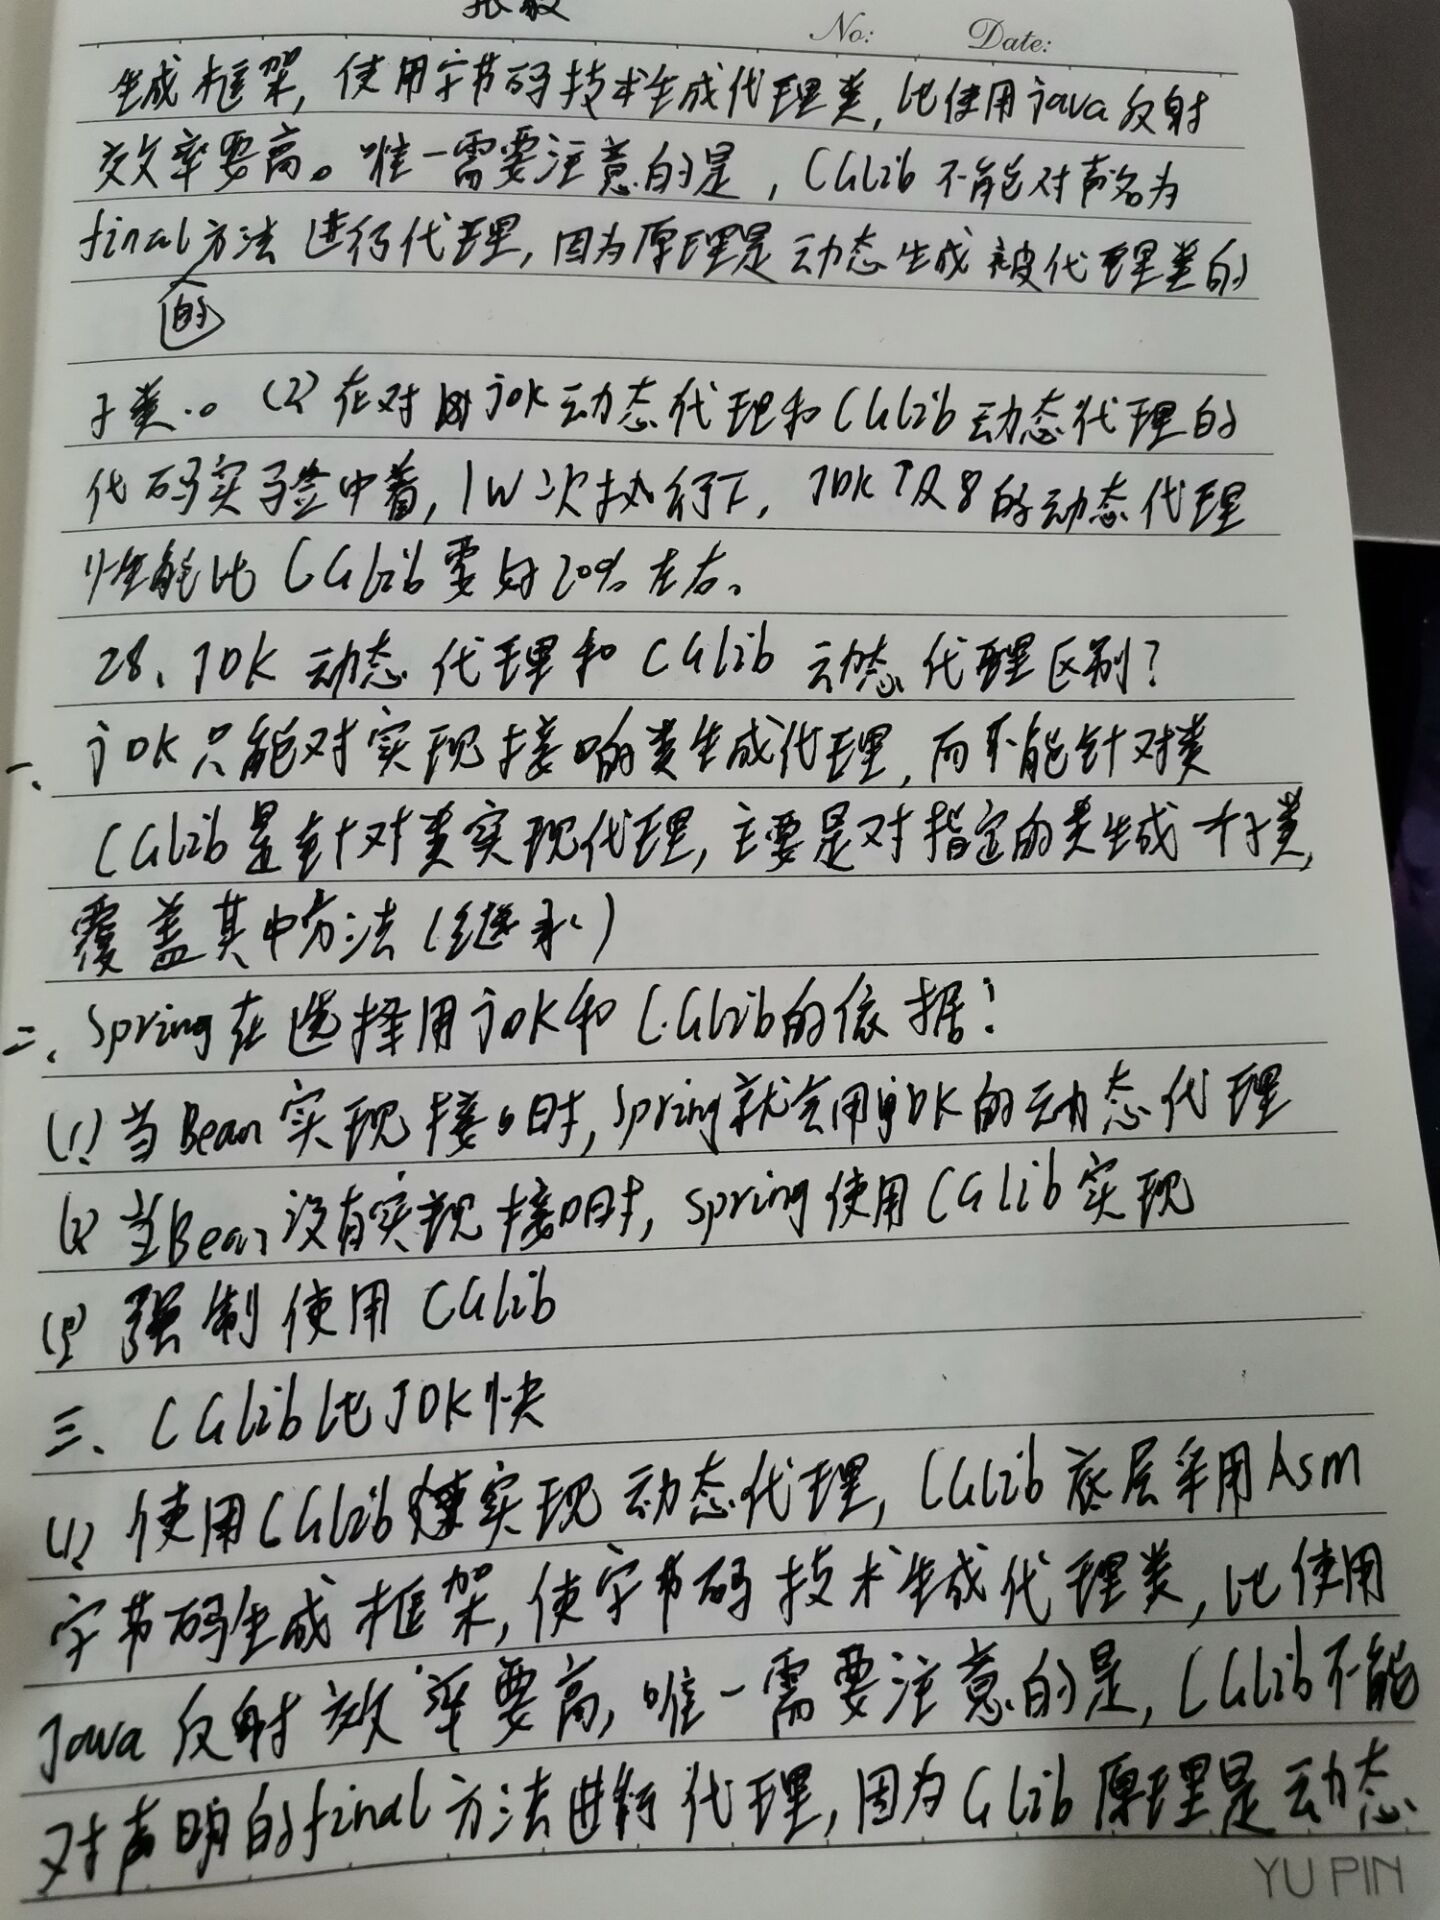 No: Date:
生成框架,使用字节码技术生成代理类,比使用java反射
效率要高。唯一需要注意的是,CGLib不能对声名为
final方法进行代理,因为原理是动态生成被代理类的
的
子类.。(2)在对jDK动态代理和CGLib动态代理的
代码实验中着,1W次执行下,JDK7及8的动态代理
性能比CGLib要好20%左右。
28、JDK动态代理和CGLib动态代理区别?
一、jDK只能对实现接口的类生成代理,而不能针对类
CGLib是针对类实现代理,主要是对指定的类生成一个子类,
覆盖其中方法(继承)
二、Spring在选择用jDK和CGLib的依据:
(1)当Bean实现接口时,Spring就会用jDK的动态代理
(2)当Bean没有实现接口时,Spring使用CGLib实现
(3)强制使用CGLib
三、CGLib比JDK快
(1)使用CGLib实现动态代理,CGLib底层采用Asm
字节码生成框架,使字节码技术生成代理类,比使用
Java反射效率要高,唯一需要注意的是,CGLib不能
对声明的final方法进行代理,因为GLib原理是动态
YU PIN